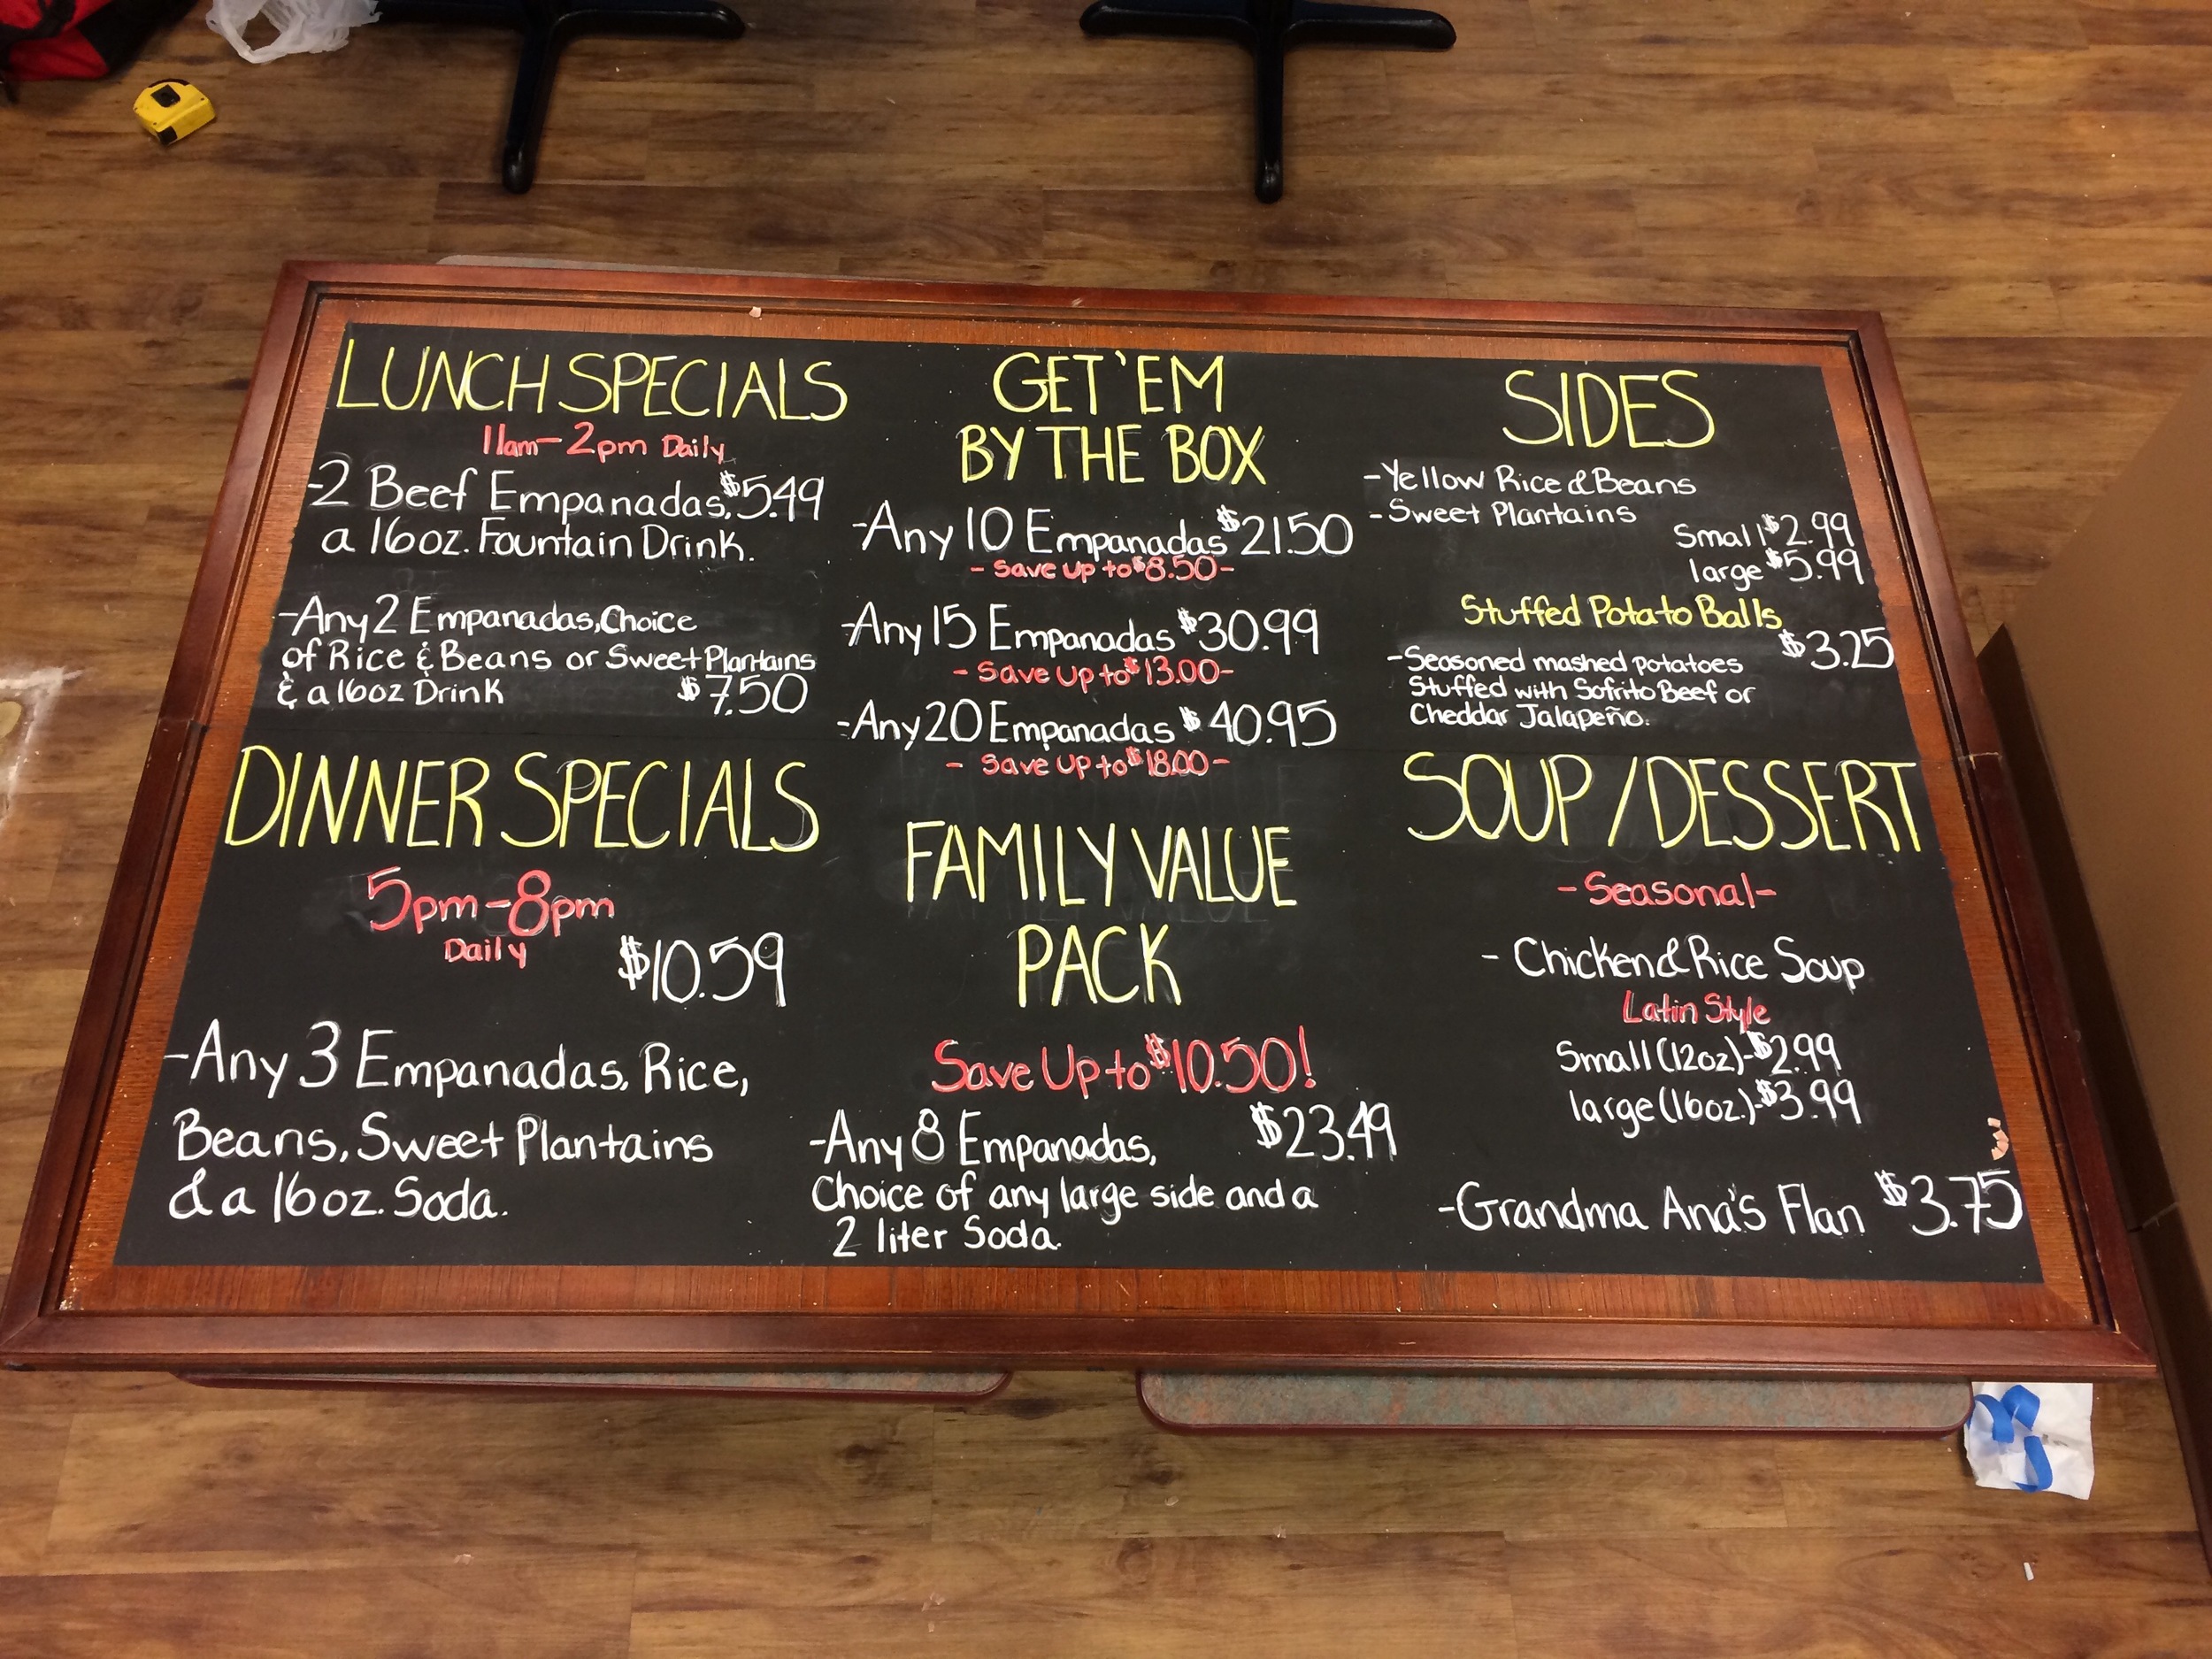 LUNCH SPECIALS
11am-2pm Daily
-2 Beef Empanadas, $5.49
a 16oz. Fountain Drink.
-Any 2 Empanadas, Choice
of Rice & Beans or Sweet Plantains
& a 16oz Drink $7.50
DINNER SPECIALS
5pm-8pm
Daily
$10.59
-Any 3 Empanadas, Rice,
Beans, Sweet Plantains
& a 16oz. Soda.
GET 'EM
BY THE BOX
-Any 10 Empanadas $21.50
- Save up to $8.50-
-Any 15 Empanadas $30.99
- Save up to $13.00-
-Any 20 Empanadas $40.95
- Save up to $18.00-
FAMILY VALUE
PACK
Save Up to $10.50!
-Any 8 Empanadas, $23.49
Choice of any large side and a
2 liter Soda.
SIDES
-Yellow Rice & Beans
-Sweet Plantains
Small $2.99
large $5.99
Stuffed Potato Balls
$3.25
-Seasoned mashed potatoes
Stuffed with Sofrito Beef or
Cheddar Jalapeño.
SOUP/DESSERT
-Seasonal-
- Chicken & Rice Soup
Latin Style
Small (12oz)-$2.99
large (16oz.)-$3.99
-Grandma Ana's Flan $3.75